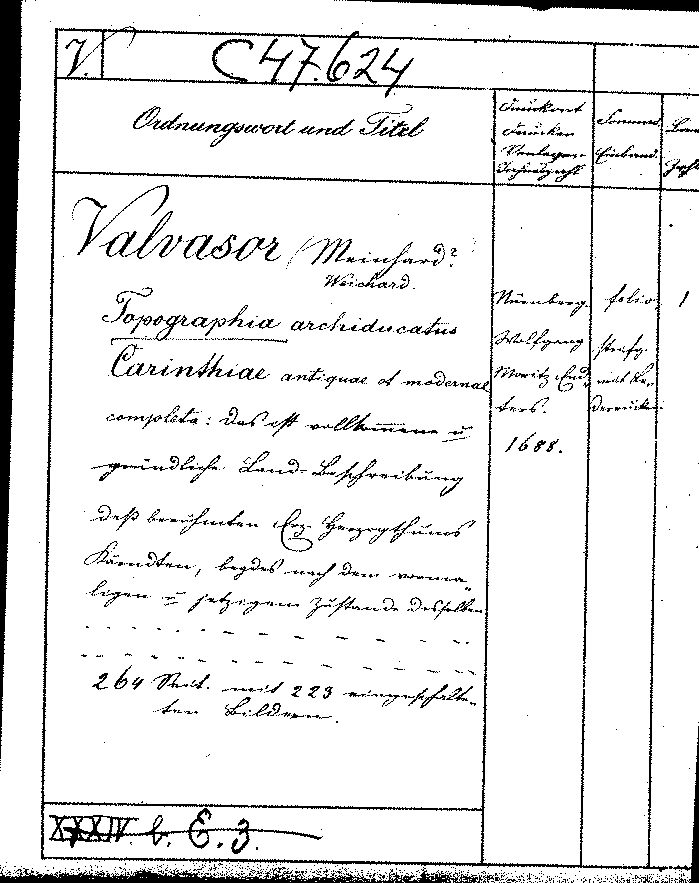 V. C 47.624
Ordnungswort und Titel
Druckort
Drucker
Verleger
Jahrzahl
Einband
Valvasor (Meinhard?
Weichard.
Topographia archiducatus
Carinthiae antiquae et modernae
completa: das ist vollkommene u
gründliche Land-Beschreibung
deß berühmten Erz-Herzogthums
Kärndten, beydes nach dem vorma-
ligen u jetzigem Zustande desselben
264 Seit. mit 223 eingeschalte-
ten Bildern.
Nürnberg.
Wolfgang
Moritz End-
ters.
1688.
folio
1
XXXIV. b. E. 3.